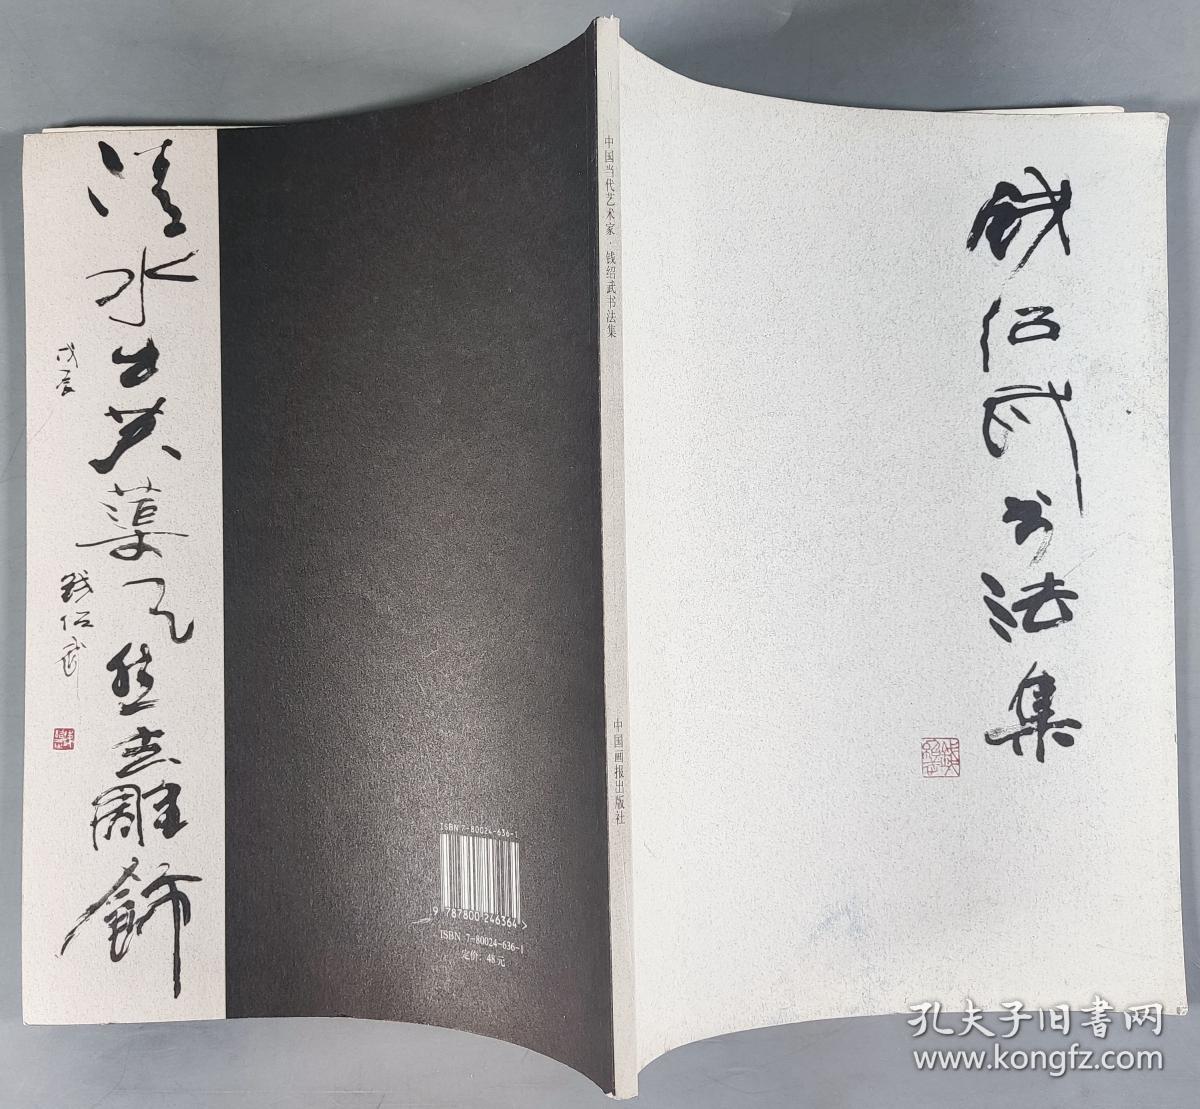 清水出芙蕖天然去雕饰
戊辰
钱绍武
ISBN 7-80024-636-1
9 787800 246364 >
ISBN 7-80024-636-1
定价: 48元
中国当代艺术家·钱绍武书法集
中国画报出版社
钱绍武书法集
孔夫子旧书网
www.kongfz.com